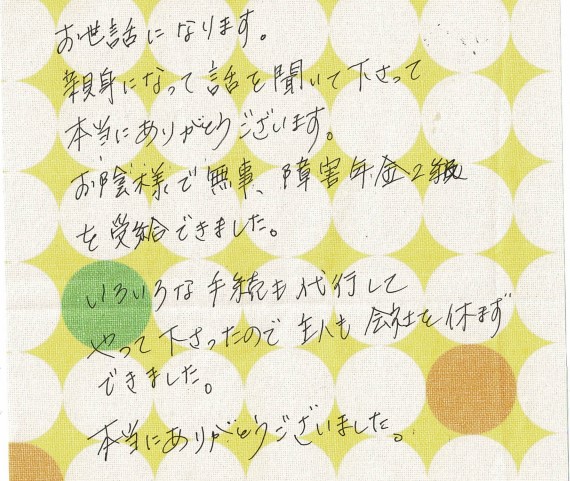 お世話になります。
親身になって話を聞いて下さって
本当にありがとうございます。
お陰様で無事、障害年金2級
を受給できました。
いろいろな手続も代行して
やって下さったので主人も会社を休まず
できました。
本当にありがとうございました。